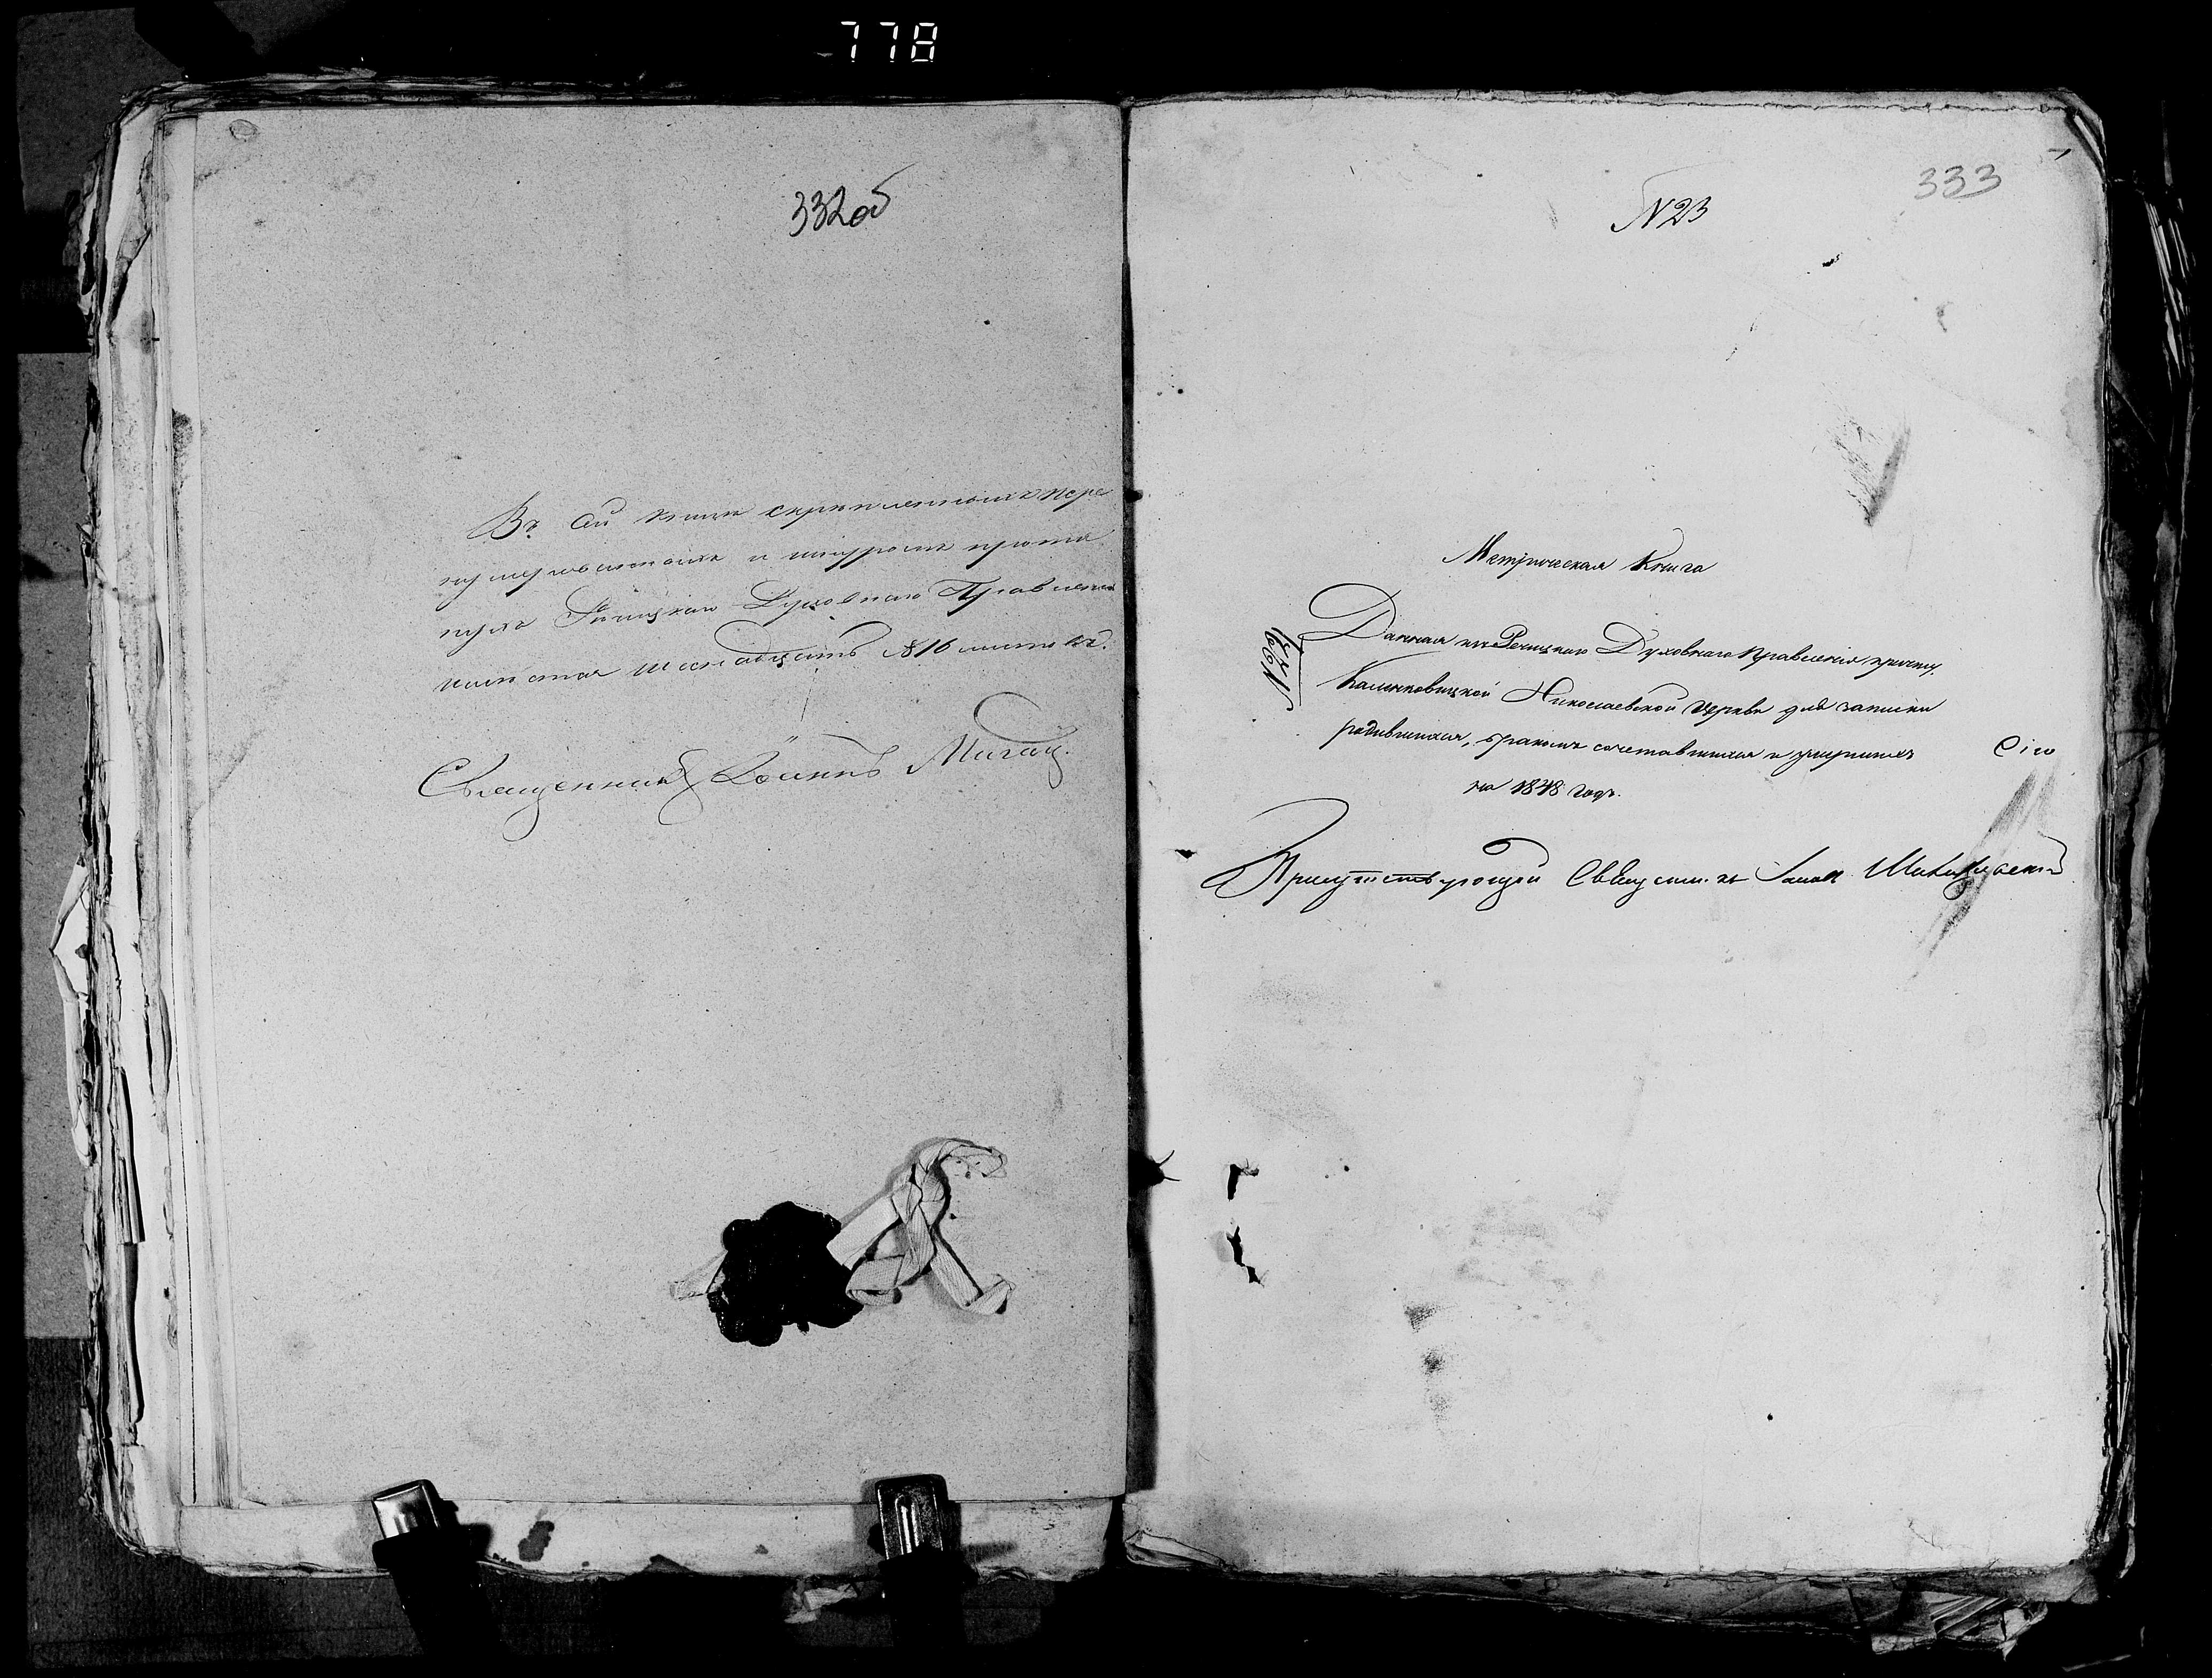 778
332об
Въ сей книгѣ скрѣпленныхъ пере
нумерованныхъ и шнуромъ прошну
тыхъ Рѣчицкаго Духовнаго Правленія
печатью шеснадцать №16 листовъ.
Священникъ Іоаннъ
333
№23
Метрическая Книга
Данная изъ Речицкаго Духовнаго Правленія причту
Калинковицкой Николаевской Церкви для записки
родившихся, бракомъ сочетавшихся и умершихъ
на 1848 годъ.
Присутствующій Священникъ